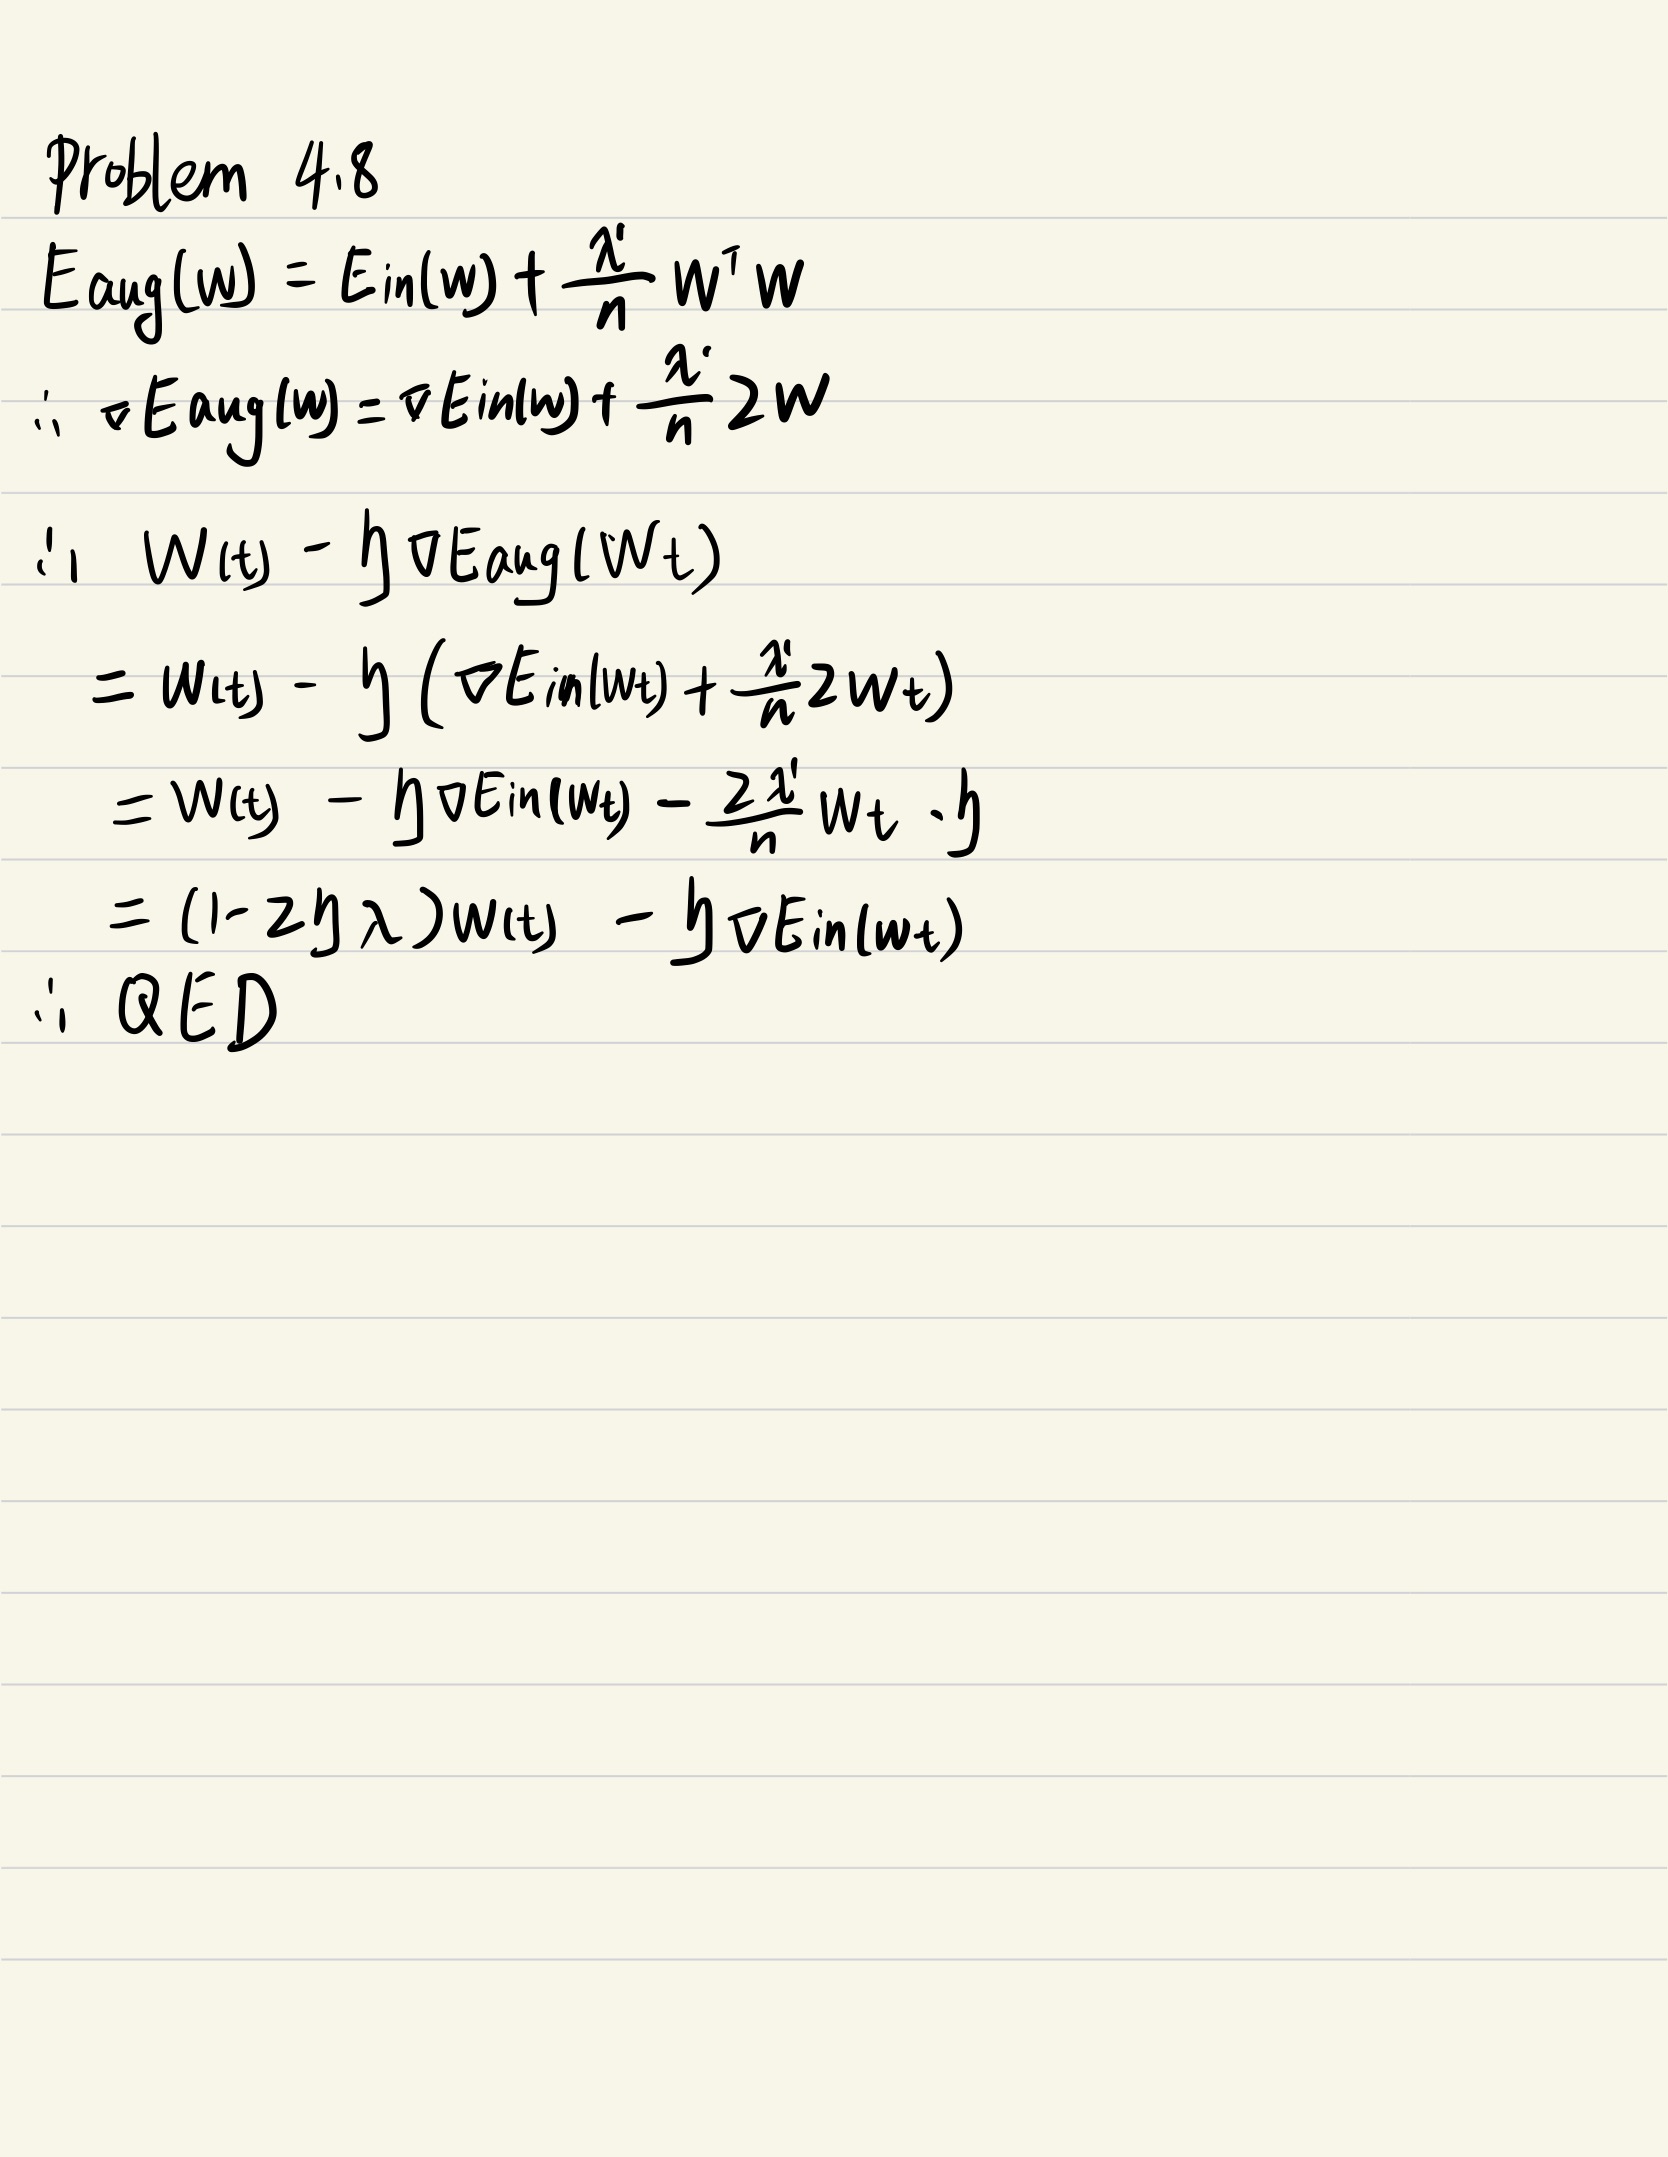 Problem 4.8
Eaug(w) = Ein(w) + λ'/n wᵀw
∴ ∇Eaug(w) = ∇Ein(w) + λ'/n 2w
∴ w(t) - η∇Eaug(wt)
= w(t) - η(∇Ein(wt) + λ'/n 2wt)
= w(t) - η∇Ein(wt) - 2λ'/n wt · η
= (1-2ηλ)w(t) - η∇Ein(wt)
∴ QED